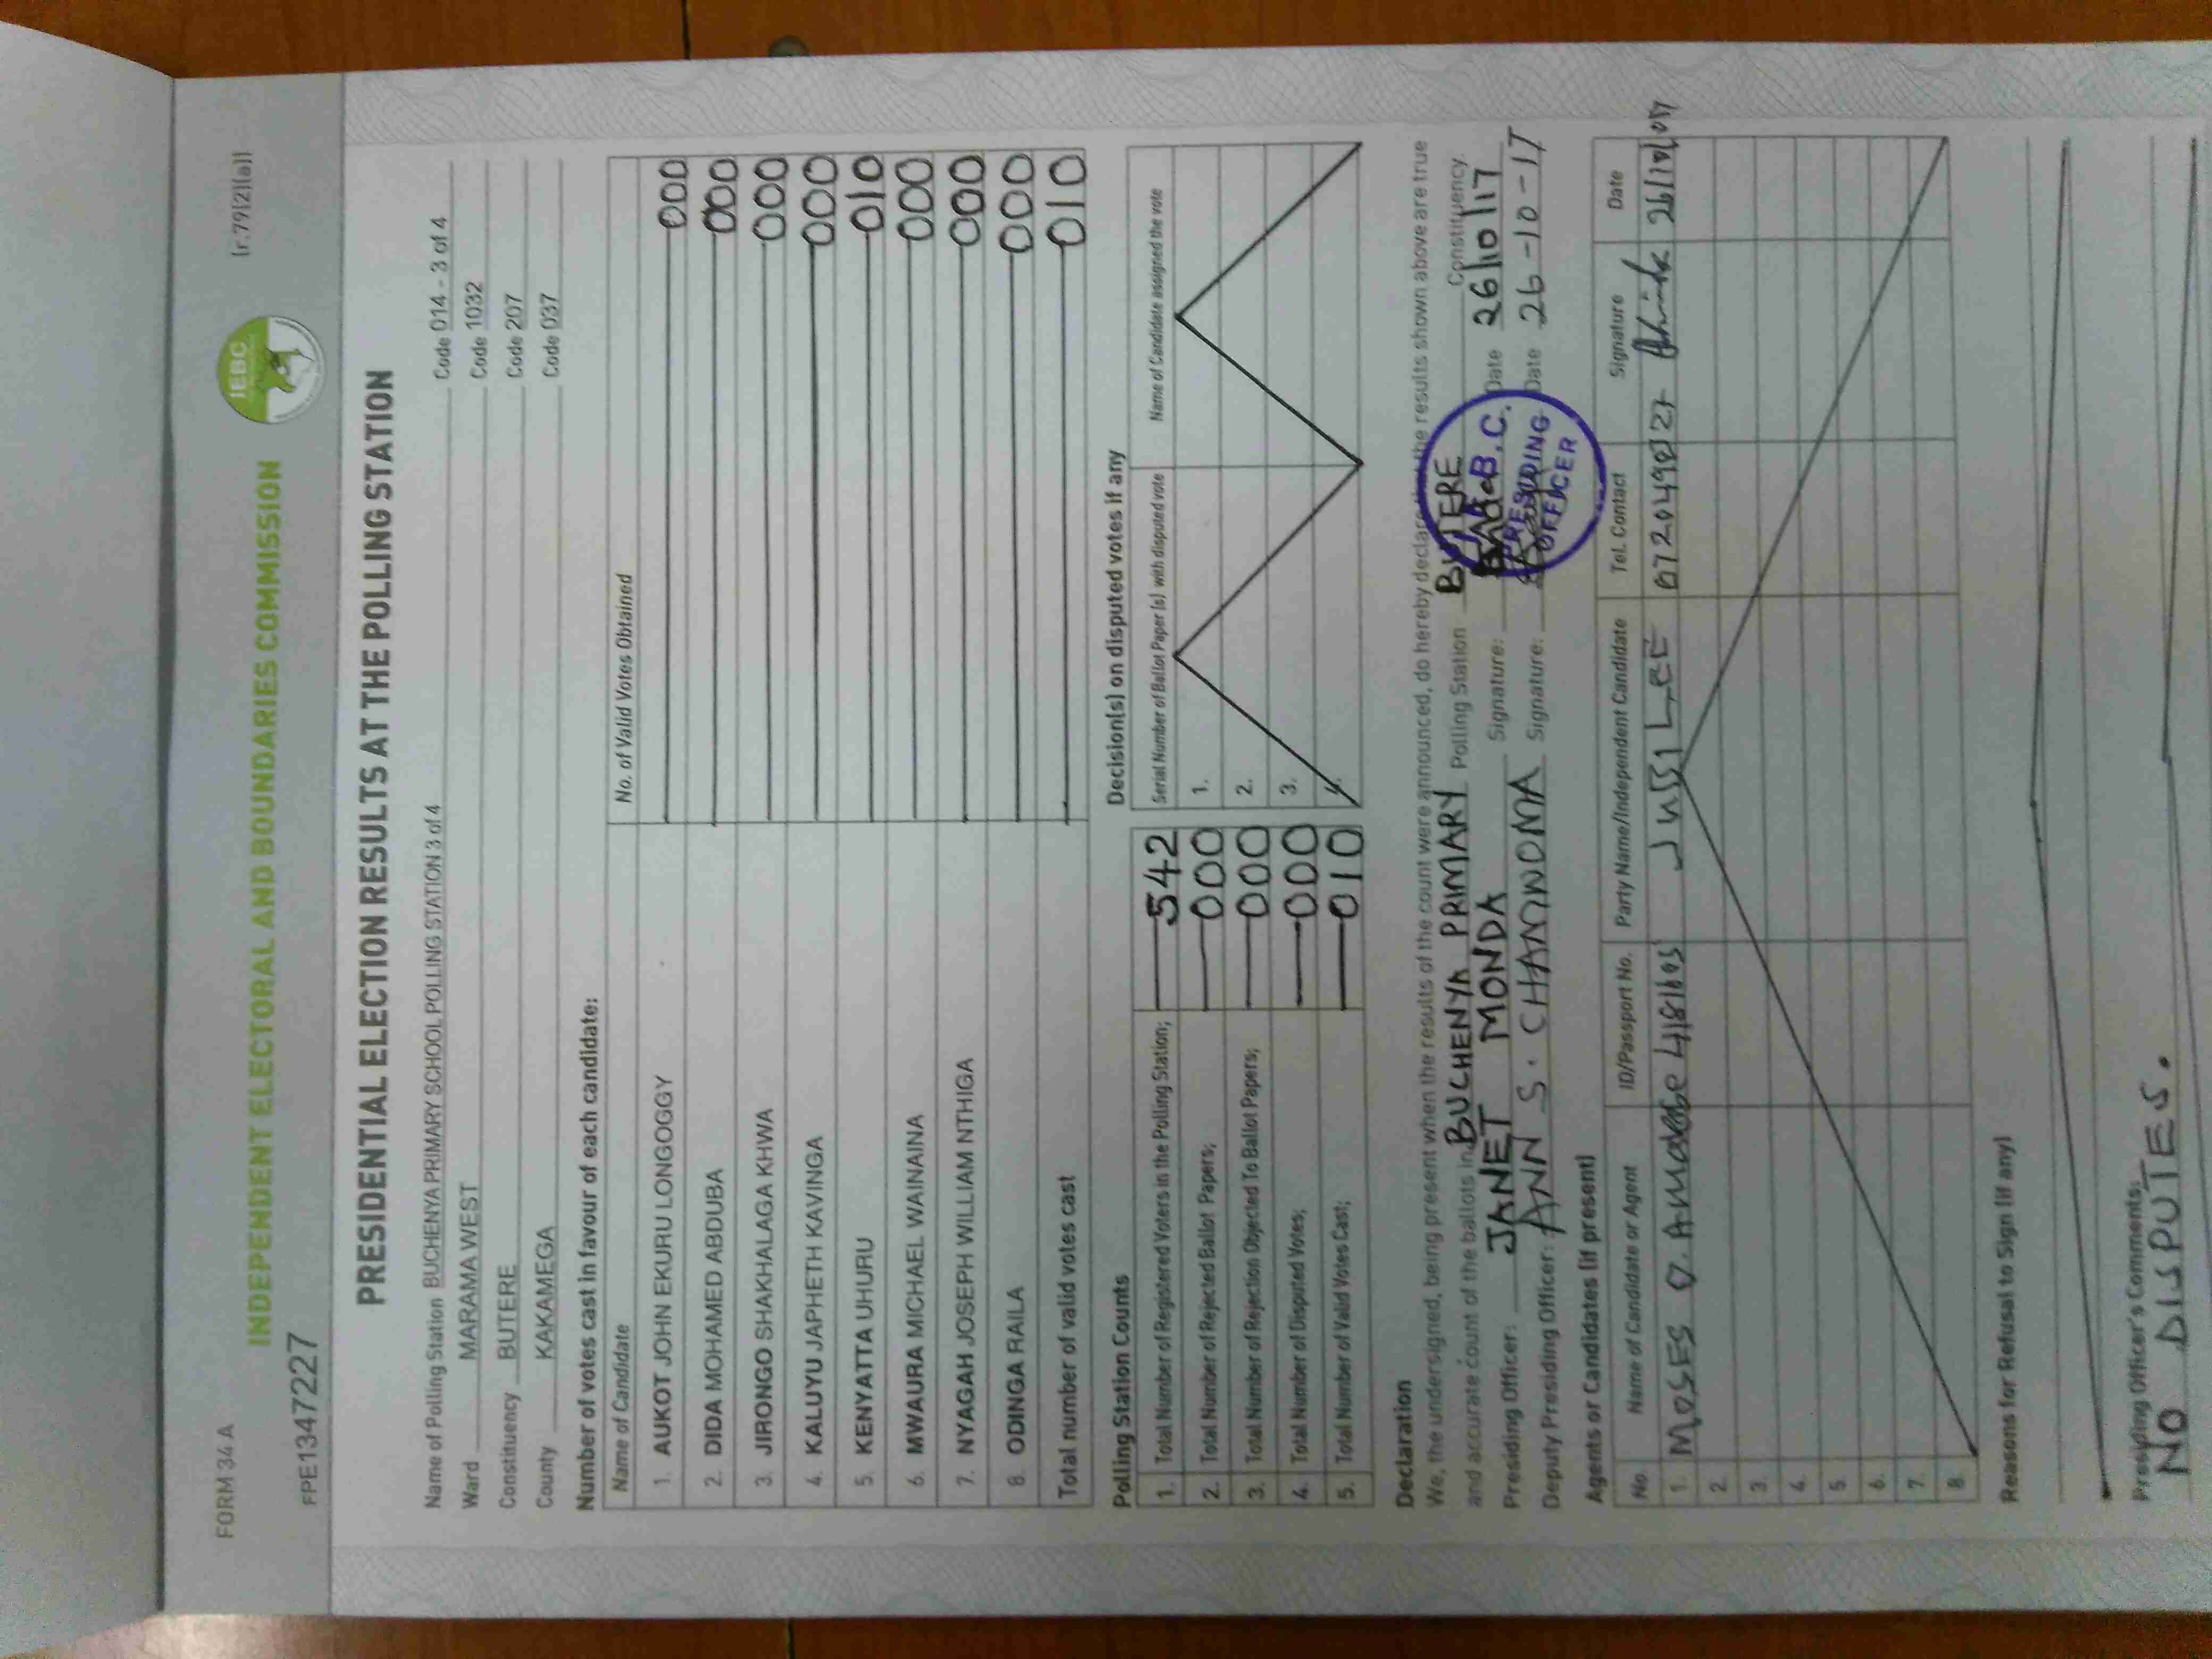 FORM 34 A
[r.79(2)(a)]
IEBC
INDEPENDENT ELECTORAL AND BOUNDARIES COMMISSION
FPE1347227
PRESIDENTIAL ELECTION RESULTS AT THE POLLING STATION
Name of Polling Station BUCHENYA PRIMARY SCHOOL POLLING STATION 3 of 4 Code 014 - 3 of 4
Ward MARAMA WEST Code 1032
Constituency BUTERE Code 207
County KAKAMEGA Code 037
Number of votes cast in favour of each candidate:
Name of Candidate No. of Valid Votes Obtained
1. AUKOT JOHN EKURU LONGOGGY 000
2. DIDA MOHAMED ABDUBA 000
3. JIRONGO SHAKHALAGA KHWA 000
4. KALUYU JAPHETH KAVINGA 000
5. KENYATTA UHURU 010
6. MWAURA MICHAEL WAINAINA 000
7. NYAGAH JOSEPH WILLIAM NTHIGA 000
8. ODINGA RAILA 000
Total number of valid votes cast 010
Polling Station Counts
1. Total Number of Registered Voters in the Polling Station; 542
2. Total Number of Rejected Ballot Papers; 000
3. Total Number of Rejection Objected To Ballot Papers; 000
4. Total Number of Disputed Votes; 000
5. Total Number of Valid Votes Cast; 010
Decision(s) on disputed votes if any
Serial Number of Ballot Paper (s) with disputed vote Name of Candidate assigned the vote
1.
2.
3.
4.
Declaration
We, the undersigned, being present when the results of the count were announced, do hereby declare that the results shown above are true
and accurate count of the ballots in BUCHENYA PRIMARY Polling Station BUTERE Constituency.
Presiding Officer: JANET MONDA Signature: Date 26/10/17
Deputy Presiding Officer: ANN S. Signature: Date 26-10-17
PRESIDING
OFFICER
Agents or Candidates (if present)
No Name of Candidate or Agent ID/Passport No. Party Name/Independent Candidate Tel. Contact Signature Date
1. MOSES O.
2.
3.
4.
5.
6.
7.
8.
Reasons for Refusal to Sign (if any)
Presiding Officer's Comments:
NO DISPUTES.